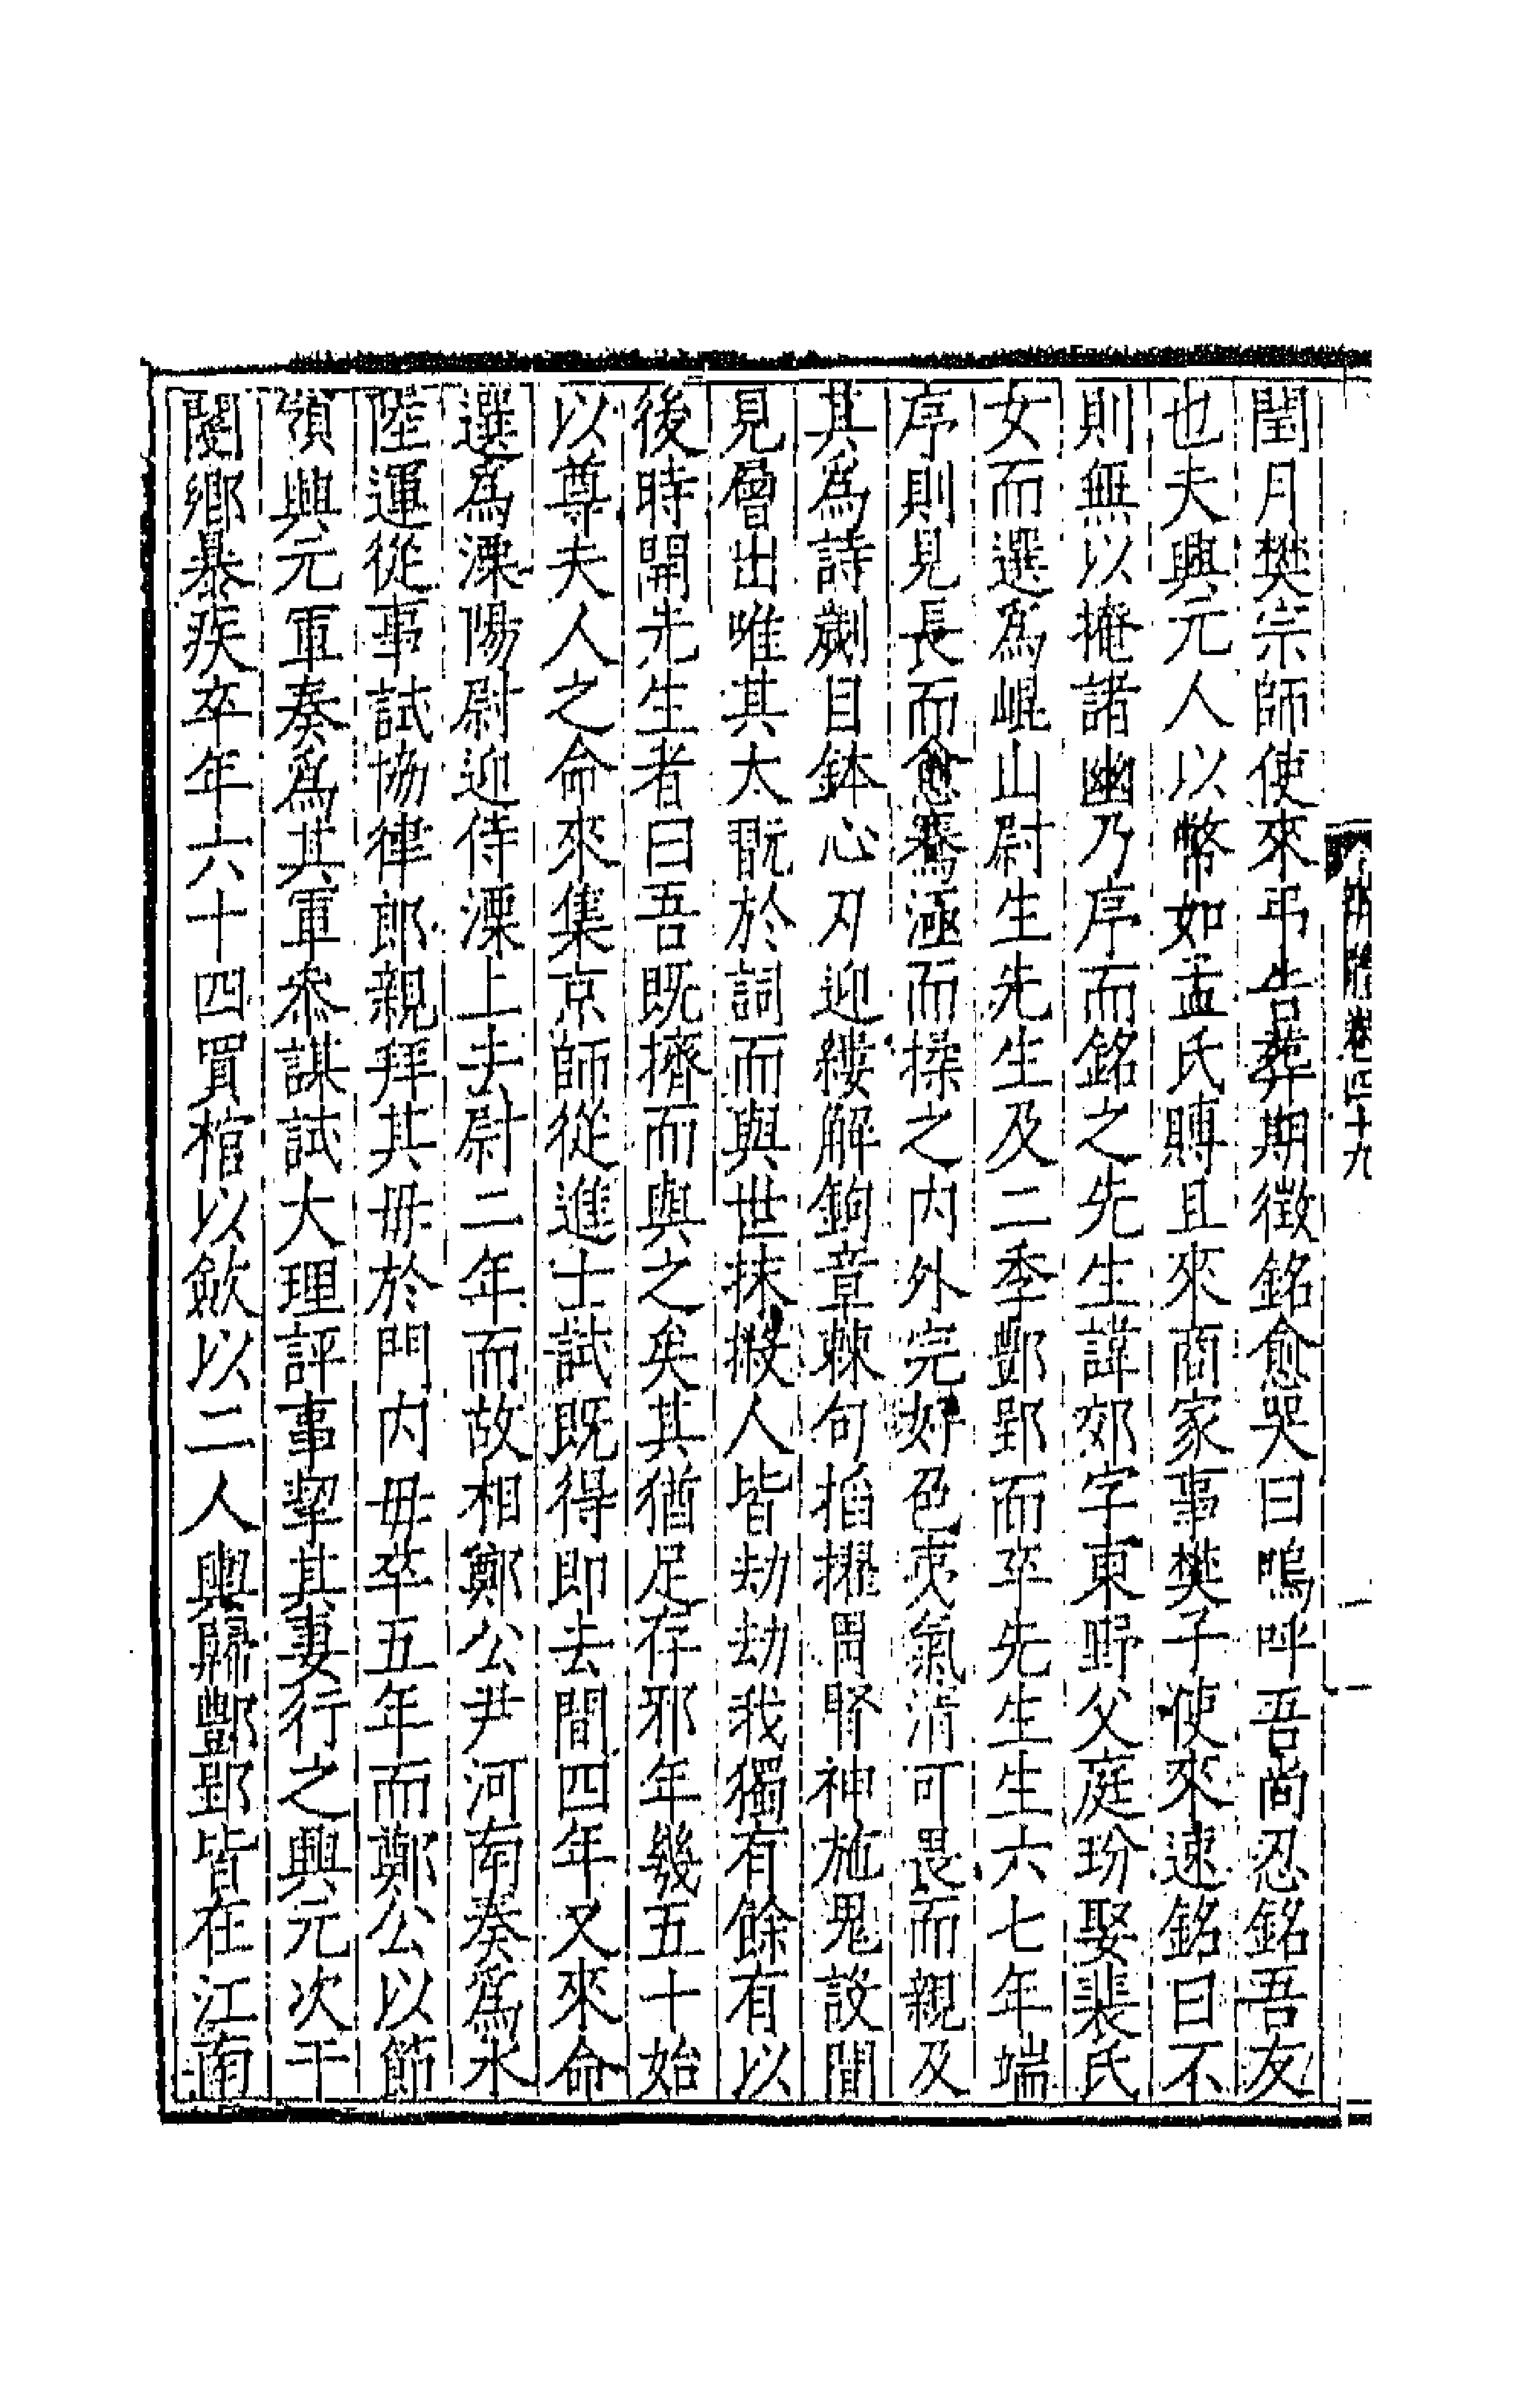 閏月樊宗師使來弔告葬期徵銘愈哭曰嗚呼吾尚忍銘吾友
也夫興元人以幣如孟氏賻且來商家事樊子使來速銘曰不
則無以掩諸幽乃序而銘之先生諱郊字東野父庭玢娶裴氏
女而選爲崐山尉生先生及二季酆郢而卒先生生六七年端
序則見長而愈騫涵而揉之内外完好色夷氣清可畏而親及
其爲詩劌目鉥心刃迎縷解鉤章棘句搯擢胃腎神施鬼設間
見層出唯其大翫於詞而與世抹摋人皆劫劫我獨有餘有以
後時開先生者曰吾既擠而與之矣其猶足存邪年幾五十始
以尊夫人之命來集京師從進士試既得即去間四年又來命
選爲溧陽尉迎侍溧上去尉二年而故相鄭公尹河南奏爲水
陸運從事試協律郎親拜其毋於門内毋卒五年而鄭公以節
領興元軍奏爲其軍叅謀試大理評事挈其妻行之興元次于
閿鄉暴疾卒年六十四買棺以斂以二人輿歸酆郢皆在江南
卷四十九